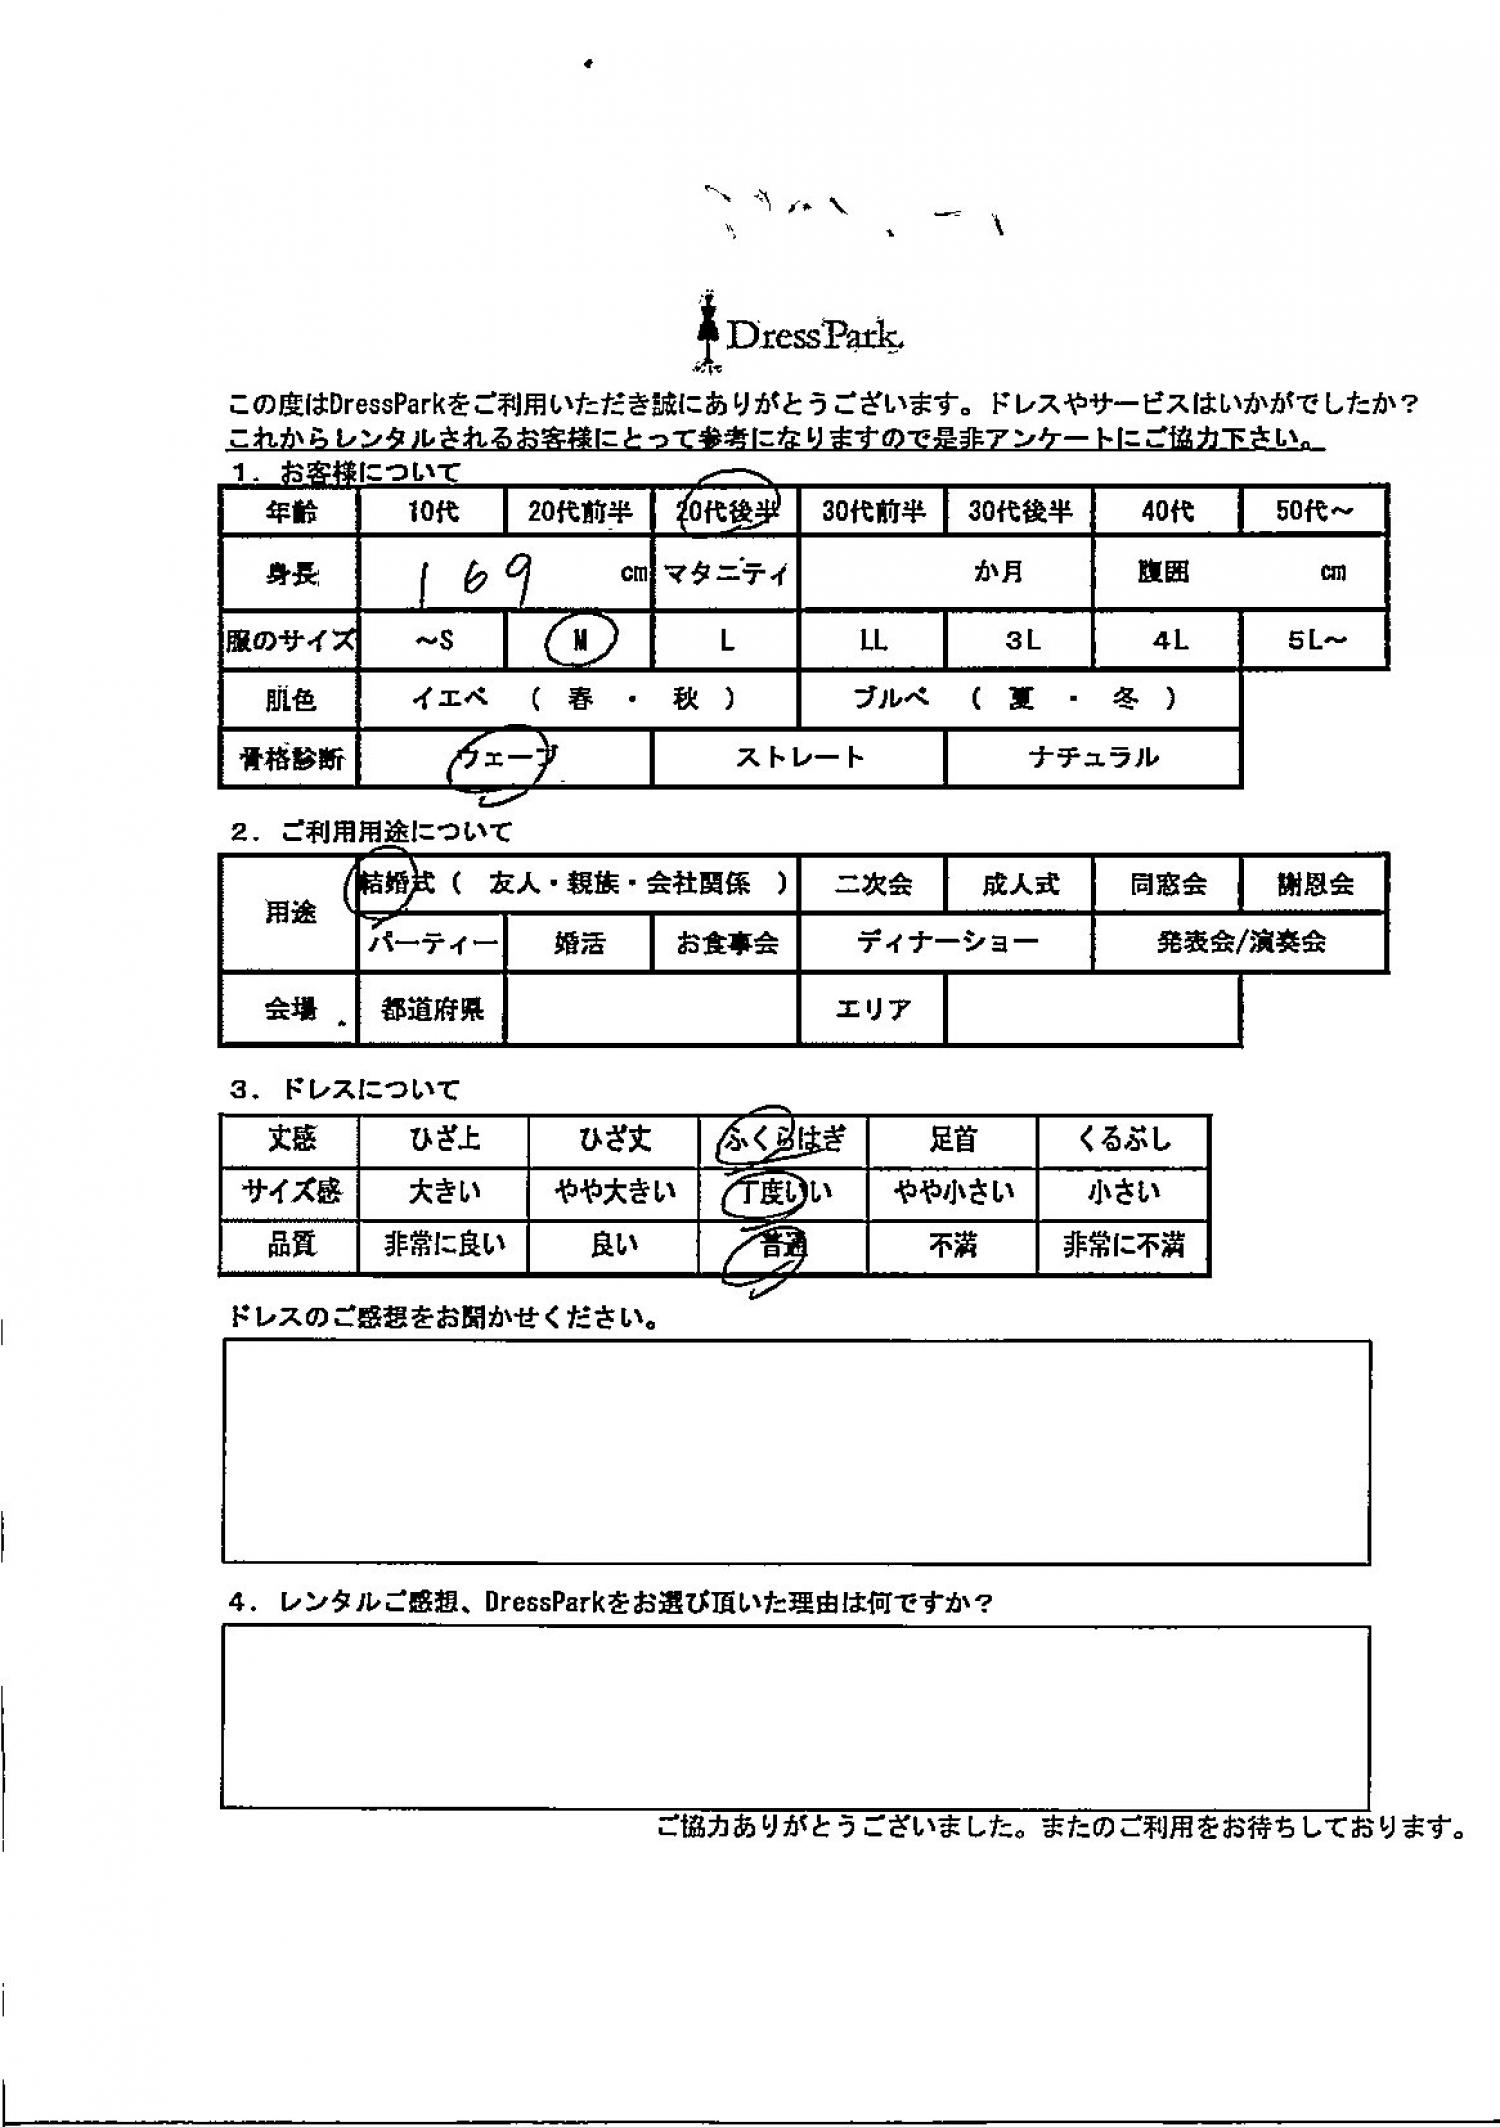 DressPark
この度はDressParkをご利用いただき誠にありがとうございます。ドレスやサービスはいかがでしたか？
これからレンタルされるお客様にとって参考になりますので是非アンケートにご協力下さい。
１．お客様について
年齢 10代 20代前半 20代後半 30代前半 30代後半 40代 50代～
身長 169 cm マタニティ か月 腹囲 cm
服のサイズ ～S M L LL 3L 4L 5L～
肌色 イエベ （ 春 ・ 秋 ） ブルベ （ 夏 ・ 冬 ）
骨格診断 ウェーブ ストレート ナチュラル
２．ご利用用途について
用途 結婚式（ 友人・親族・会社関係 ） 二次会 成人式 同窓会 謝恩会
パーティー 婚活 お食事会 ディナーショー 発表会/演奏会
会場 都道府県 エリア
３．ドレスについて
丈感 ひざ上 ひざ丈 ふくらはぎ 足首 くるぶし
サイズ感 大きい やや大きい 丁度いい やや小さい 小さい
品質 非常に良い 良い 普通 不満 非常に不満
ドレスのご感想をお聞かせください。
４．レンタルご感想、DressParkをお選び頂いた理由は何ですか？
ご協力ありがとうございました。またのご利用をお待ちしております。